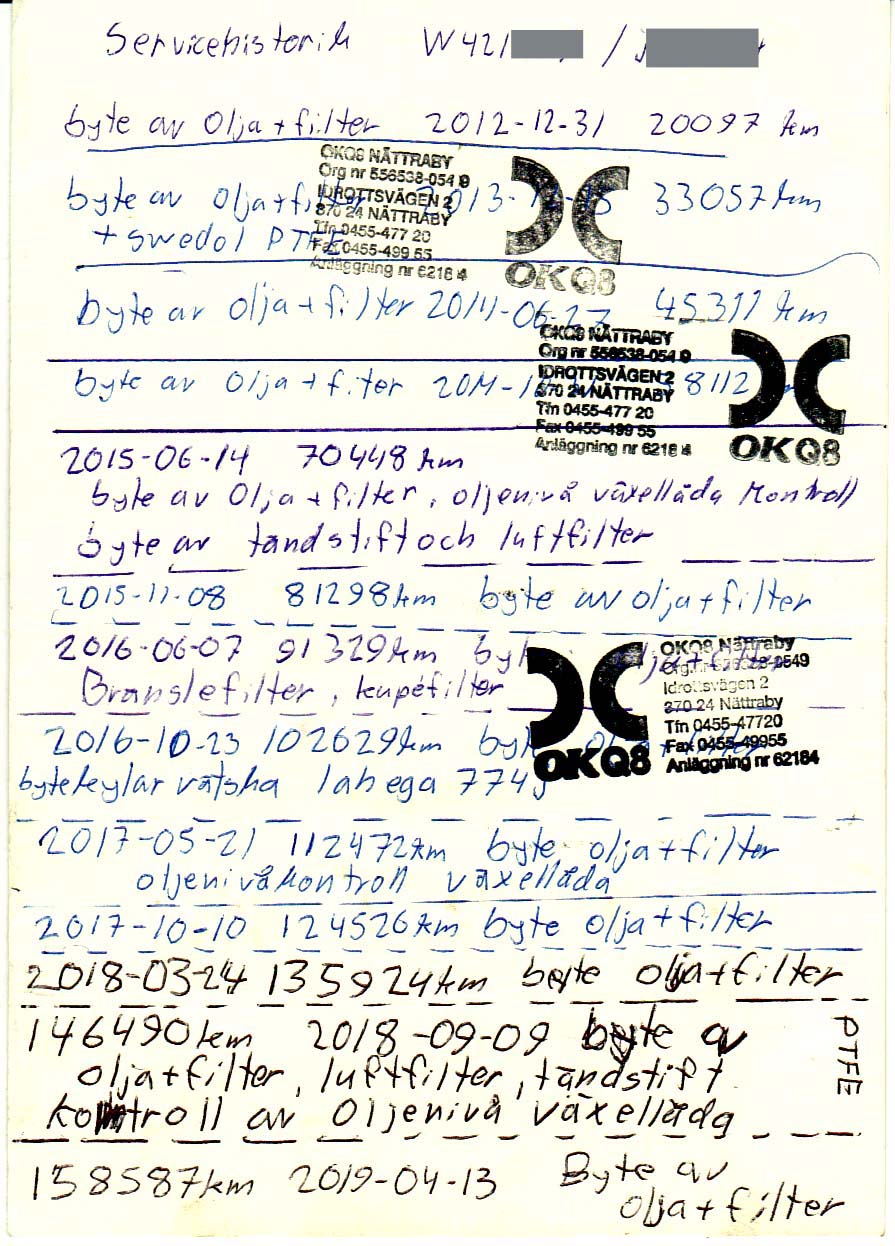 Servicehistorik W421 /
byte av olja + filter 2012-12-31 20097 km
OKQ8 NÄTTRABY
Org nr 556538-054 9
IDROTTSVÄGEN 2
370 24 NÄTTRABY
Tfn 0455-477 20
Fax 0455-499 55
Anläggning nr 6218 4
OKQ8
byte av olja + filter 2013-12-15 33057 km
+ swedol PTFE
byte av olja + filter 2014-06-27 45311 km
OKQ8 NÄTTRABY
Org nr 556538-054 9
IDROTTSVÄGEN 2
370 24 NÄTTRABY
Tfn 0455-477 20
Fax 0455-499 55
Anläggning nr 6218 4
OKQ8
byte av olja + filter 8112
2015-06-14 70448 km
byte av olja + filter, oljenivå växellåda kontroll
byte av tändstift och luftfilter
2015-11-08 81298 km byte av olja + filter
2016-06-07 91329 km olja + filter
Bränslefilter, kupéfilter
OKQ8
OKQ8 Nättraby
Idrottsvägen 2
370 24 Nättraby
Tfn 0455-47720
Fax 0455-49955
Anläggning nr 62184
2016-10-23 102629 km
byte kylar vätska lahega 774
2017-05-21 112472 km byte olja + filter
oljenivåkontroll växellåda
2017-10-10 124526 km byte olja + filter
2018-03-24 135924 km byte olja + filter
146490 km 2018-09-09 byte av
olja + filter, luftfilter, tändstift
kontroll av oljenivå växellåda
PTFE
158587 km 2019-04-13 Byte av
olja + filter